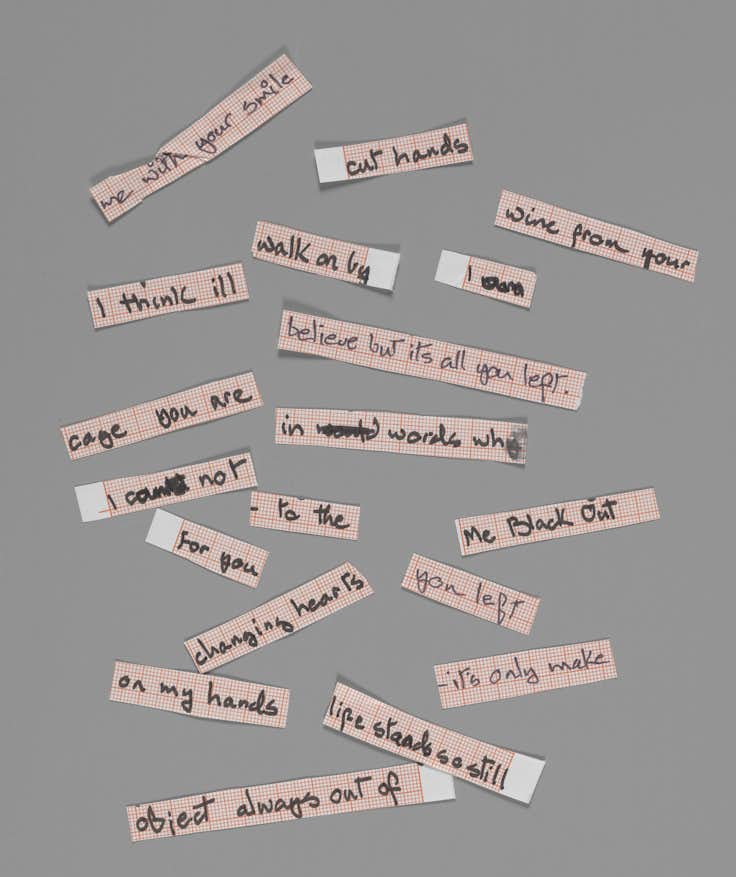 me with your smile
cut hands
wine from your
walk on by
I own
I think ill
believe but its all you left.
cage you are
in words wh
I not
- to the
Me Black Out
for you
you left
changing hearts
- it's only make
on my hands
life stands so still
object always out of